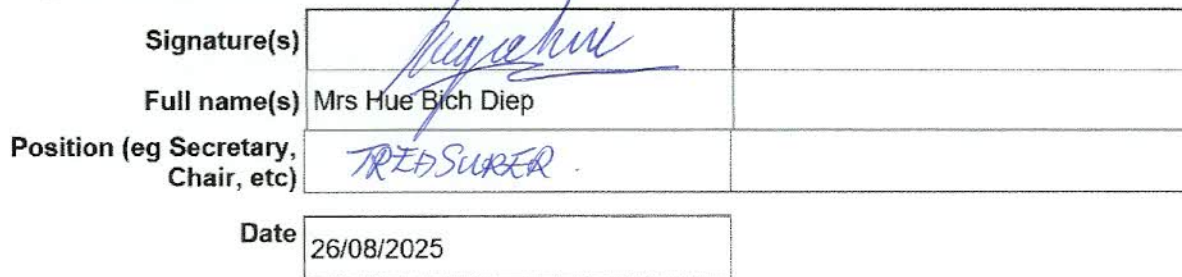 Signature(s)
Full name(s) Mrs Hue Bich Diep
Position (eg Secretary,
Chair, etc) TREASURER.
Date 26/08/2025